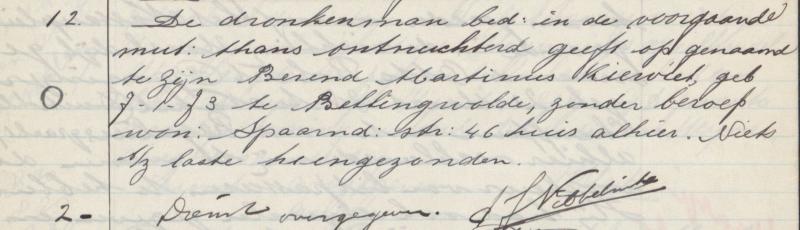 12. De dronkenman bed: in de voorgaande
mut: thans ontnuchterd geeft op genaamd
te zijn Berend Martinus Kiewiet, geb
O 7-1-73 te Bellingwolde, zonder beroep
won: Spaarnd: str: 46 huis alhier. Niets
t/z laste heengezonden.
2- Dienst overgegeven.